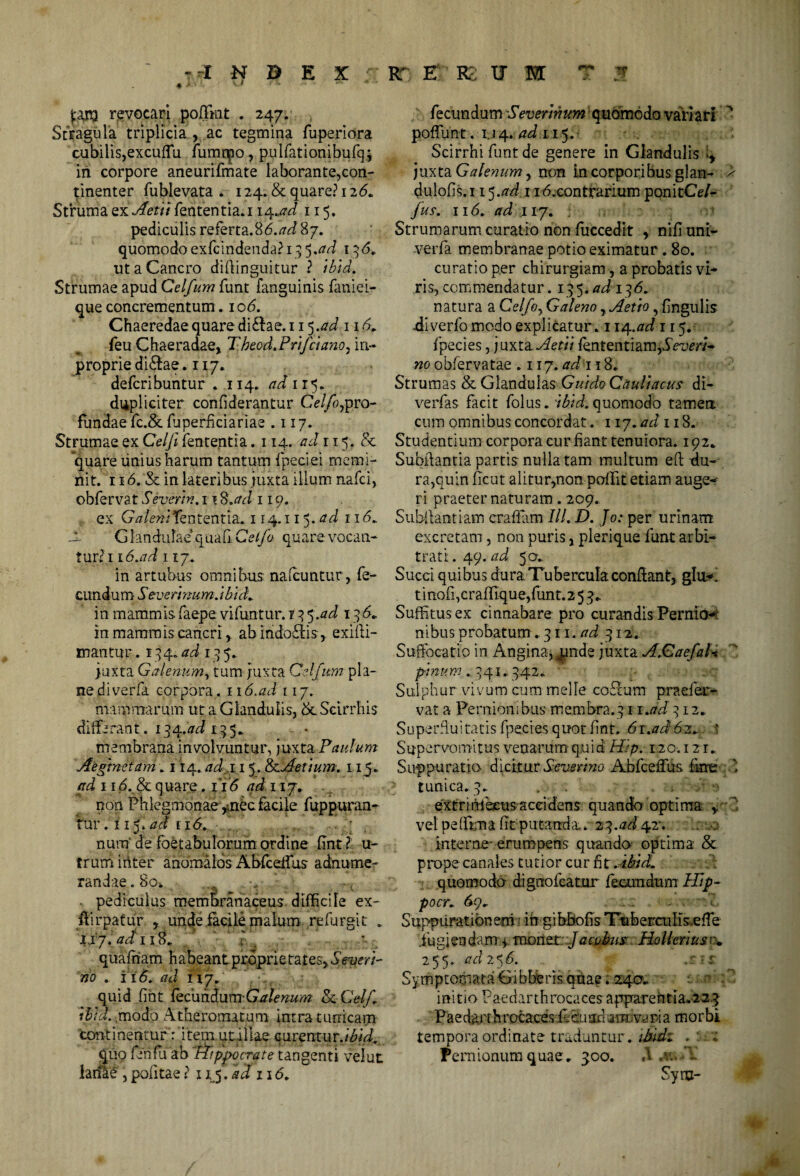 INDEX RERUM
tam revocari possint . 247.
Stragula triplicia , ac tegmina superiora
cubilis,excussu fumoqo, pulsationibusq;
in corpore aneurismate laborante,con-
tinenter sublevata . 124. & quare? 126.
Struma ex Aetii sententia.114.ad 115.
pediculis referta.86.ad 87.
quomodo exscindenda? 135.ad 136.
ut a Cancro distinguitur ? ibid.
Strumae apud Celsum sunt sanguinis saniei-
que concrementum. 106.
Chaeredae quare dictae. 115.ad 116.
seu Chaeradae, Theod.Prisciano, in-
proprie dictae. 117.
describuntur . 114. ad 115.
dupliciter considerantur Celso,pro-
fundae sc.& superficiariae . 117.
Strumae ex Celsi sententia. 114. ad 115. &
quare unius harum tantum speciei memi-
nit. 116. & in lateribus juxta illum nasci,
observat Severin. 118.ad 119.
ex Galeni sententia. 114.115. ad 116.
Glandulae quasi Celso quare vocan-
tur? 116.ad 117.
in artubus omnibus nascuntur, se-
cundum Severinum.ibid.
in mammis saepe visuntur. 135.ad 136.
in mammis cancri, ab indoctis, existi-
mantur. 134. ad 135.
juxta Galenum, tum juxta Celsum pla-
ne diversa corpora. 116.ad 117.
mammarum ut a Glandulis, & Scirrhis
differant. 134.ad 135.
membrana involvuntur, juxta Paulum
Aeginetam . 114. ad 115. & Aetium. 115.
ad 116. & quare . 116 ad 117.
non Phlegmonae, nec facile suppuran-
tur . 115. ad 116.
num de foetabulorum ordine sint? u-
trum inter anomalos Abscessus adnume-
randae. 80.
pediculus membranaceus difficile ex-
stirpatur , unde facile malum resurgit .
117. ad 118.
quasnam habeant proprietates, Severi-
no . 116. ad 117.
quid sint secundum Galenum & Cels.
ibid. modo Atheromatum intra tunicam
continentur: item ut illae curentur.ibid.
quo sensu ab Hippocrate tangenti velut
lanae , positae ? 115. ad 116.
secundum Severinum quomodo variari
possunt. 114. ad 115.
Scirrhi sunt de genere in Glandulis ,
juxta Galenum, non in corporibus glan-
dulosis. 115.ad 116.contrarium ponit Cel-
sus. 116. ad 117.
Strumarum curatio non succedit , nisi uni-
versa membranae potio eximatur . 80.
curatio per chirurgiam, a probatis vi-
ris, commendatur. 135. ad 136.
natura a Celso, Galeno, Aetio, singulis
diverso modo explicatur. 114.ad 115.
species, juxta Aetii sententiam,Severi-
no observatae . 117. ad 118.
Strumas & Glandulas Guido Cauliacus di-
versas facit solus. ibid. quomodo tamen
cum omnibus concordat. 117. ad 118.
Studentium corpora cur fiant tenuiora. 192.
Substantia partis nulla tam multum est du-
ra,quin sicut alitur,non possit etiam auge-
ri praeter naturam . 209.
Substantiam crassam Ill. D. Jo: per urinam
excretam, non puris, plerique sunt arbi-
trati. 49. ad 50.
Succi quibus dura Tubercula constant, glu-
tinosi,crassique,sunt.253.
Suffitus ex cinnabare pro curandis Pernio-
nibus probatum . 311. ad 312.
Suffocatio in Angina, unde juxta A.Caesal-
pinum . 341. 342.
Sulphur vivum cum melle coctum praeser-
vat a Pernionibus membra.311.ad 312.
Superfluitatis species quot sint. 61.ad 62.
Supervomitus venarum quid Hip. 120.121.
Suppuratio dicitur Severino Abscessus sine
tunica. 3.
extrinsecus accidens quando optima ,
vel pessima sit putanda.. 23.ad 42.
interne erumpens quando optima &
prope canales tutior cur fit . ibid.
quomodo dignoscatur secundum Hip-
pocr. 69.
Suppurationem in gibbosis Tuberculis.esse
fugiendam, monet Jacobus Hollerius .
255. ad 256.
Symptomata Gibberis quae. 240.
initio Paedarthrocaces apparentia.223
Paedarthrocaces secundum varia morbi
tempora ordinate traduntur. ibid.
Pernionum quae. 300.
Sym-